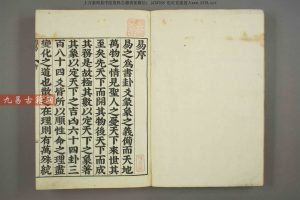 易序
易之為書卦爻彖象之義備而天地
萬物之情見聖人之憂天下來世其
至矣先天下而開其物後天下而成
其務是故極其數以定天下之象著
其象以定天下之吉凶六十四卦三
百八十四爻皆所以順性命之理盡
變化之道也散之在理則有萬殊統
九易古籍網